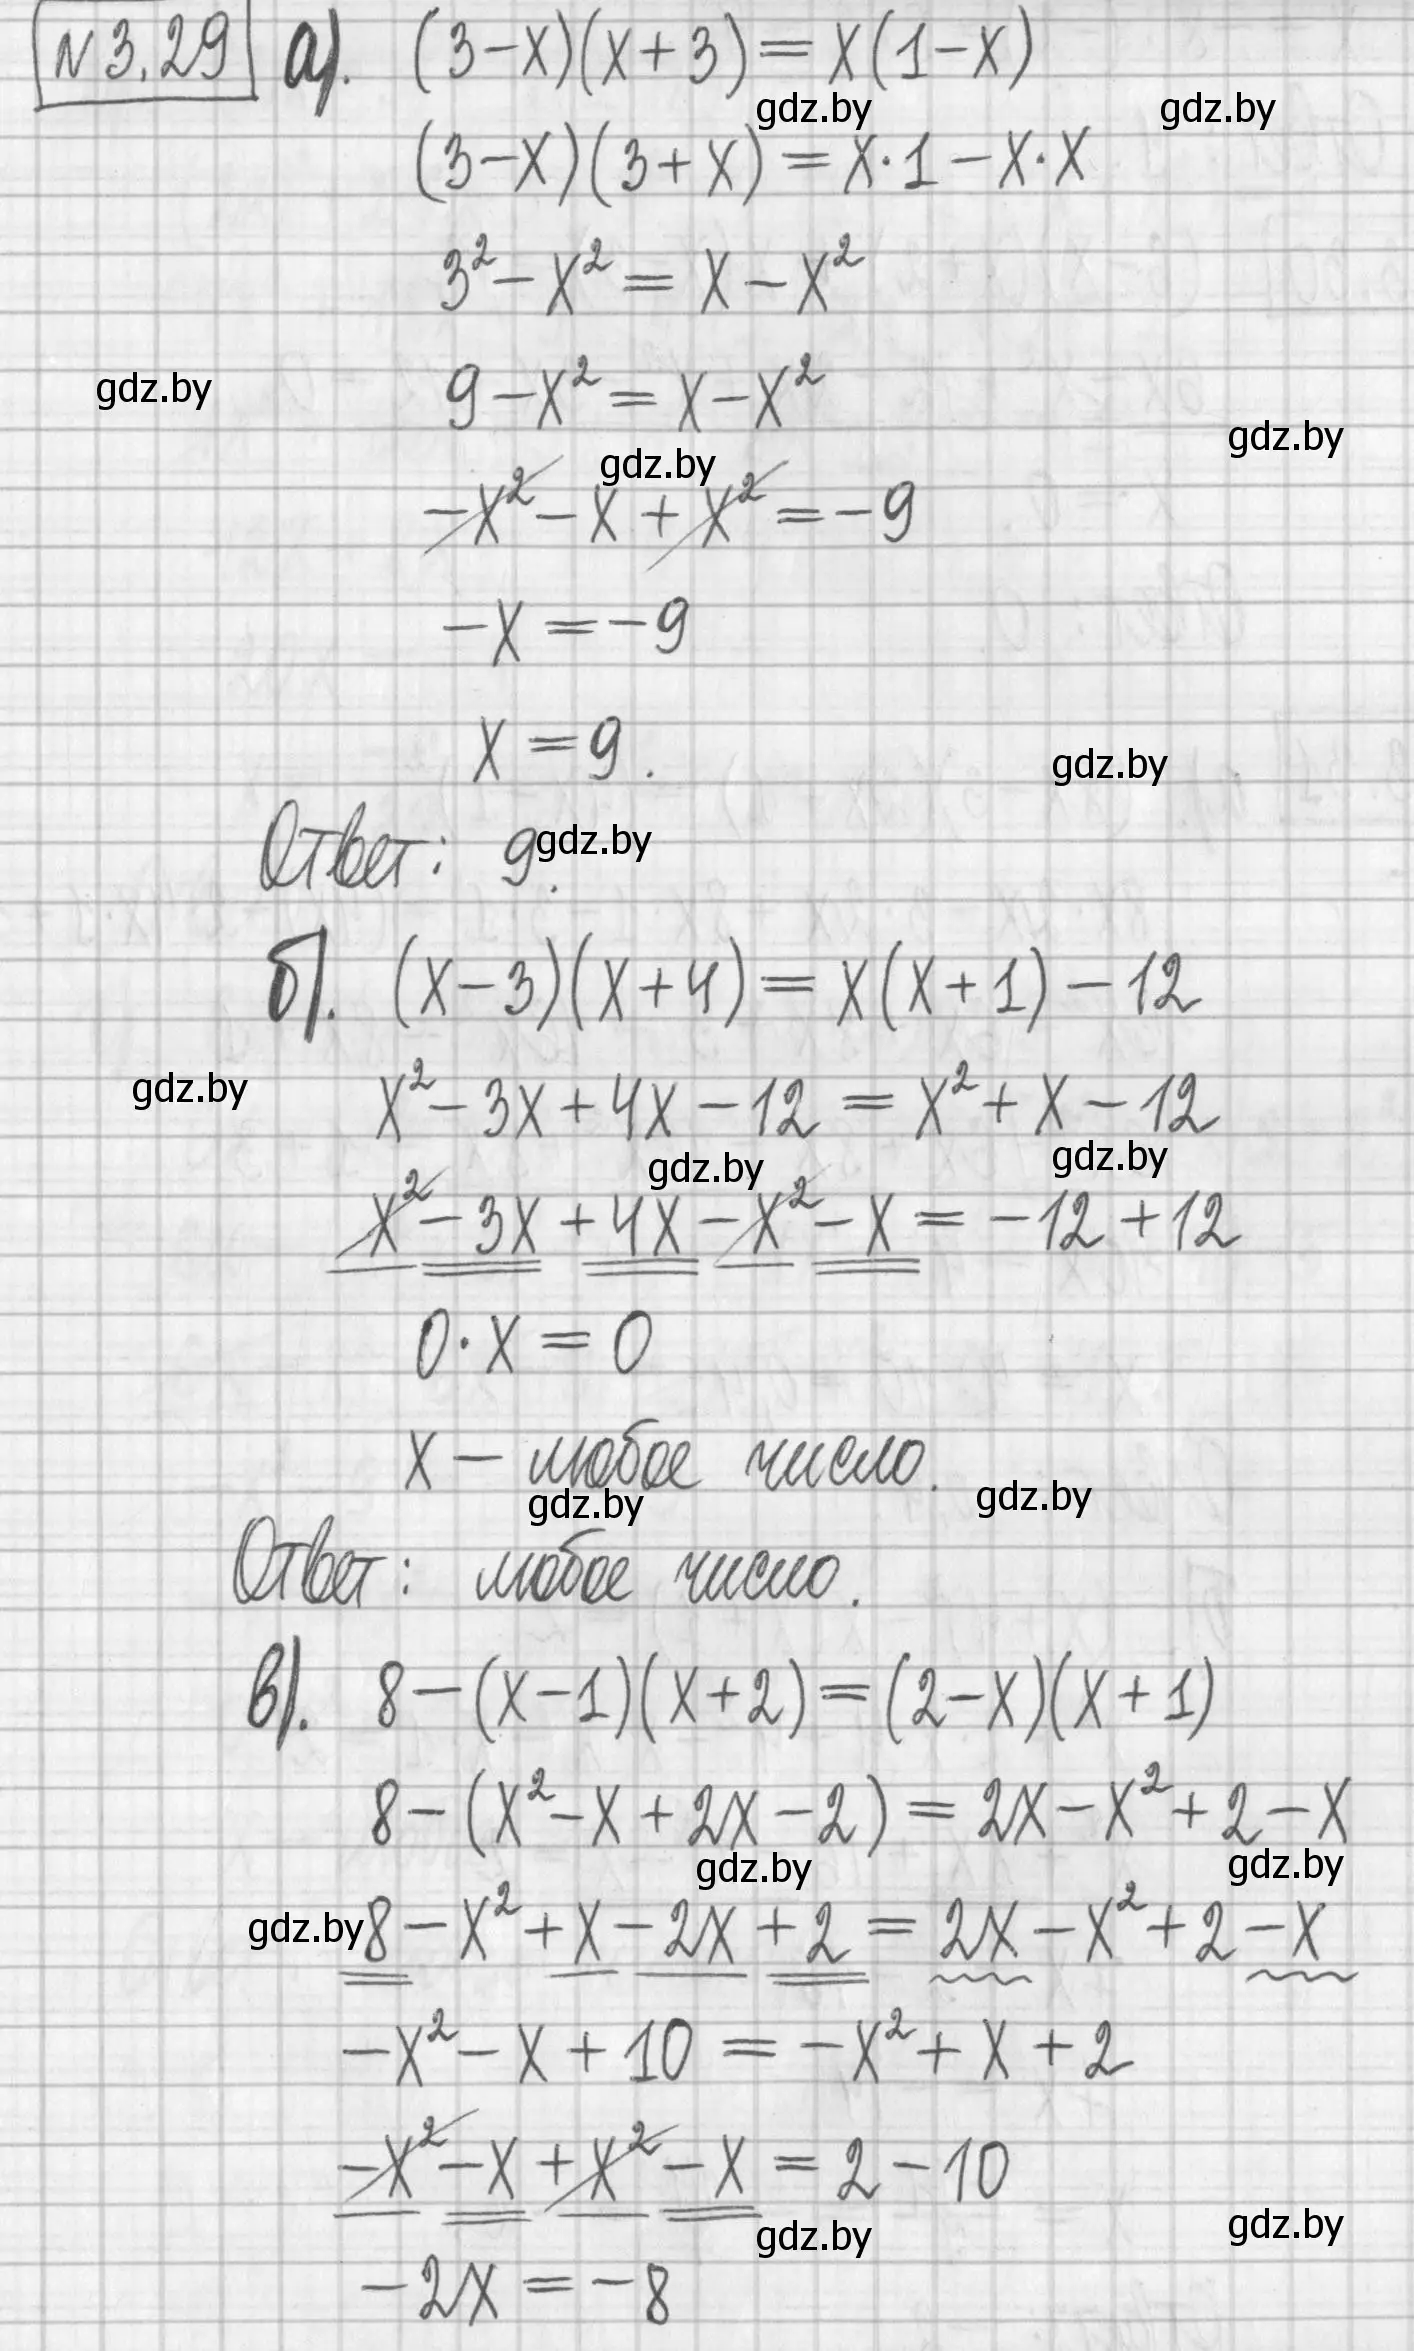 N 3.29 а). (3-x)(x+3)=x(1-x)
gdz.by gdz.by
(3-x)(3+x)=x·1-x·x
3²-x²=x-x²
9-x²=x-x²
gdz.by
gdz.by
gdz.by
-x²-x+x²=-9
-x=-9
x=9.
gdz.by
Ответ: 9.
gdz.by
б). (x-3)(x+4)=x(x+1)-12
gdz.by
x²-3x+4x-12=x²+x-12
gdz.by gdz.by
x²-3x+4x-x²-x=-12+12
0·x=0
x - любое число.
gdz.by gdz.by
Ответ: любое число.
в). 8-(x-1)(x+2)=(2-x)(x+1)
8-(x²-x+2x-2)=2x-x²+2-x
gdz.by gdz.by
gdz.by
8-x²+x-2x+2=2x-x²+2-x
-x²-x+10=-x²+x+2
-x²-x+x²-x=2-10
gdz.by gdz.by
-2x=-8